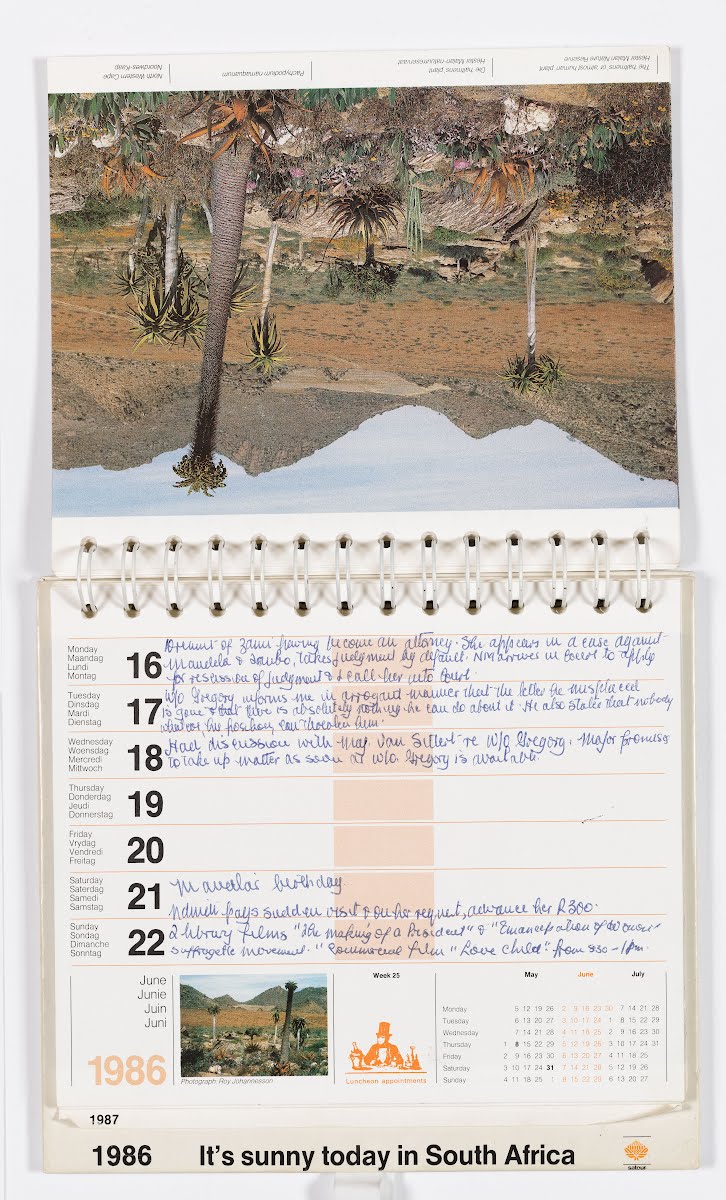 The halfmens or 'almost human' plant
Hester Malan Nature Reserve
Die 'halfmens' plant
Hester Malan-natuurreservaat
Pachypodium namaquanum
North Western Cape
Noordwes-Kaap
Monday
Maandag
Lundi
Montag
16
Dreamt of Zami having become an attorney. She appears in a case against
Mandela & Tambo, takes judgment by default. NM arrives in court to apply
for rescission of judgment & call her into court.
Tuesday
Dinsdag
Mardi
Dienstag
17
W/O Gregory informs me in arrogant manner that the letter he misplaced
is gone & that there is absolutely nothing he can do about it. He also states that nobody
whatever his position, can threaten him.
Wednesday
Woensdag
Mercredi
Mittwoch
18
Had discussion with Maj. Van Sittert re W/O Gregory. Major promises
to take up matter as soon as W/O Gregory is available.
Thursday
Donderdag
Jeudi
Donnerstag
19
Friday
Vrydag
Vendredi
Freitag
20
Saturday
Saterdag
Samedi
Samstag
21
birthday.
pays sudden visit & on her request, advance her R300.
Sunday
Sondag
Dimanche
Sonntag
22
2 library films "The making of a President" & "Emancipation of Women -
Suffragette Movement." Commercial film "Love Child" from 830 - 1pm.
June
Junie
Juin
Juni
1986
Photograph: Roy Johannesson
Week 25
Luncheon appointments
May June July
Monday 5 12 19 26 2 9 16 23 30 7 14 21 28
Tuesday 6 13 20 27 3 10 17 24 1 8 15 22 29
Wednesday 7 14 21 28 4 11 18 25 2 9 16 23 30
Thursday 1 8 15 22 29 5 12 19 26 3 10 17 24 31
Friday 2 9 16 23 30 6 13 20 27 4 11 18 25
Saturday 3 10 17 24 31 7 14 21 28 5 12 19 26
Sunday 4 11 18 25 1 8 15 22 29 6 13 20 27
1987
1986 It's sunny today in South Africa
satour